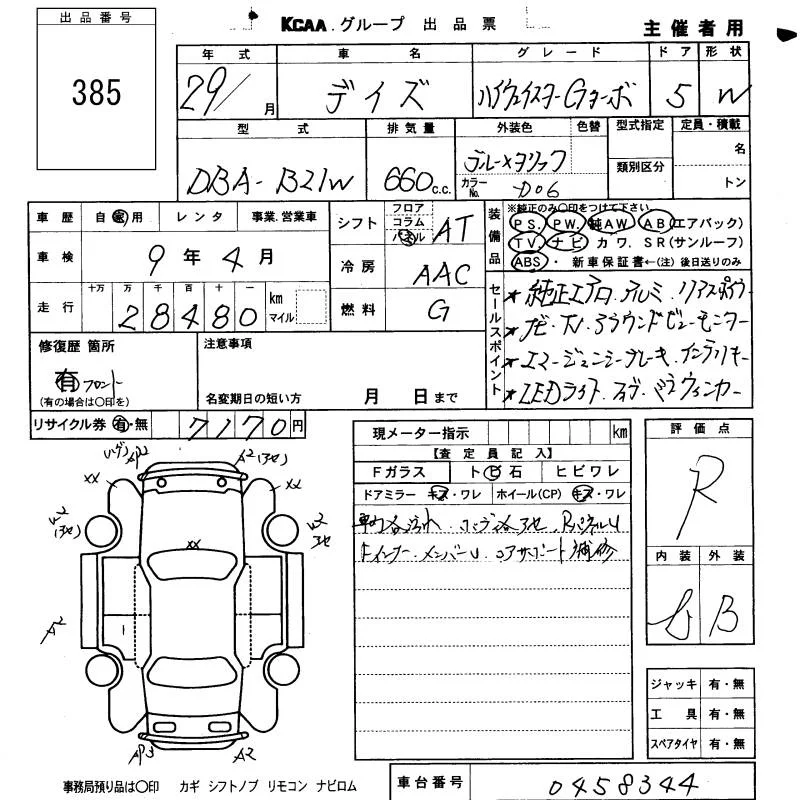 出品番号
385
KCAA.グループ 出品票
主催者用
年式 車名 グレード ドア 形状
29/ 月 デイズ ハイウェイスターGターボ 5 W
型式 排気量 外装色 色替 型式指定 定員・積載
DBA-B21W 660 c.c. ブルーメタリック カラーNo. D06 類別区分 名
トン
車歴 自家用 レンタ 事業.営業車
シフト フロア コラム パネル AT
車検 9年4月
冷房 AAC
走行 十万 万 千 百 十 一
28480 km マイル
燃料 G
装備品 ※純正のみ○印をつけて下さい
PS. PW. 純AW AB(エアバック)
TV. ナビ カワ. SR(サンルーフ)
ABS・ 新車保証書←(注)後日送りのみ
セールスポイント
★純正エアロ.アルミ.リアスポイラー
★ナビ.TV.アラウンドビューモニター
★エマージェンシーブレーキ.インテリキー
★LEDライト.
修復歴 箇所
有 フロント
(有の場合は○印を)
注意事項
名変期日の短い方 月 日まで
リサイクル券 有・無 7170円
現メーター指示 km
【査定員記入】
Fガラス ト ビ 石 ヒビワレ
ドアミラー キズ・ワレ ホイール(CP) キズ・ワレ
Rパネル
補修
評価点
R
内装 外装
B
ジャッキ 有・無
工具 有・無
スペアタイヤ 有・無
A2
XX
XX
XX
A2
1
AP3
A2
事務局預り品は○印 カギ シフトノブ リモコン ナビロム
車台番号 0458344